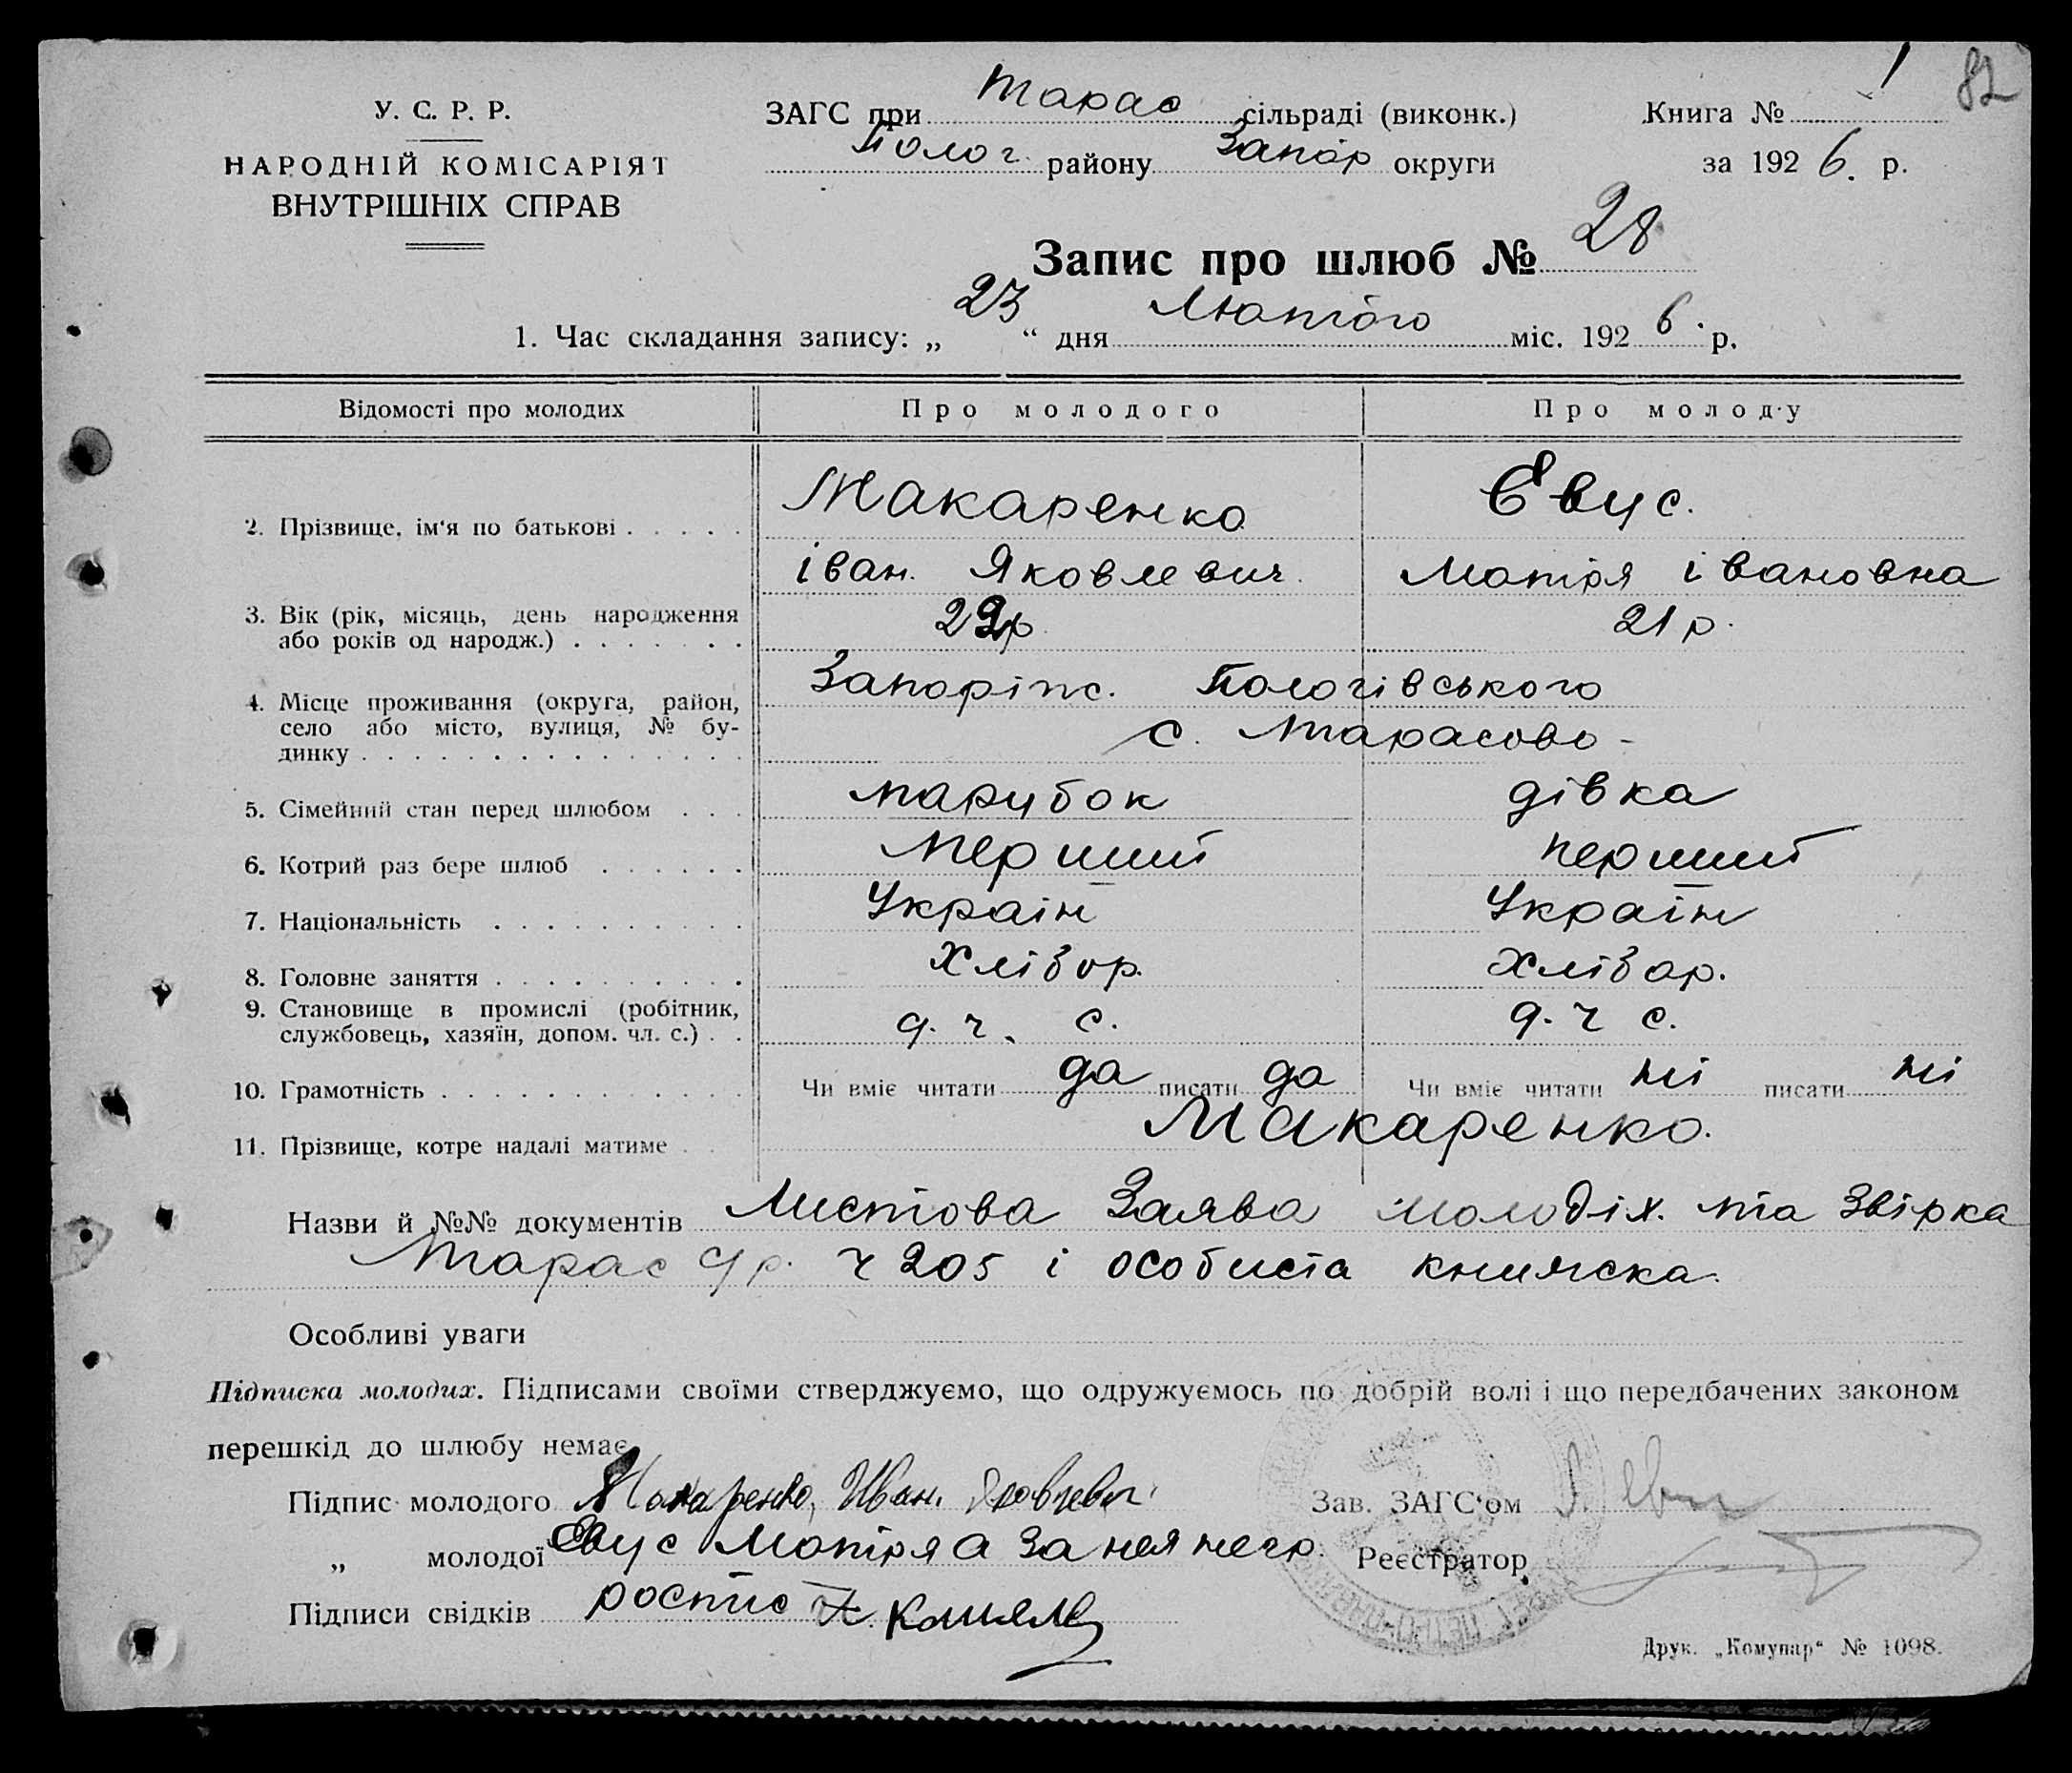 82
У. С. Р. Р.
НАРОДНІЙ КОМІСАРІЯТ
ВНУТРІШНІХ СПРАВ
ЗАГС при Тарас сільраді (виконк.)
Полог району Запор округи
Книга № 1
за 1926. р.
Запис про шлюб № 28
1. Час складання запису: „23“ дня Лютого міс. 1926. р.
Відомості про молодих Про молодого Про молоду
2. Прізвище, ім‘я по батькові Макаренко Євус.
іван. Яковлевич. Мотря івановна
3. Вік (рік, місяць, день народження
або років од народж.) 22р 21 р.
4. Місце проживання (округа, район,
село або місто, вулиця, № будинку
Запоріж. Пологівського
с. Тарасово-
5. Сімейний стан перед шлюбом парубок дівка
6. Котрий раз бере шлюб перший перший
7. Національність Украін Украін
8. Головне заняття Хлібор. Хлібор.
9. Становище в промислі (робітник,
службовець, хазяїн, допом. чл. с.) д. ч. с. д. ч с.
10. Грамотність Чи вміє читати да писати да Чи вміє читати ні писати ні
11. Прізвище, котре надалі матиме Макаренко.
Назви й №№ документів Листова Заява молодіх. та Звірка
Тарас ср. ч 205 і особиста книжска.
Особливі уваги
Підписка молодих. Підписами своїми стверджуємо, що одружуємось по добрій волі і що передбачених законом
перешкід до шлюбу немає
Підпис молодого Макаренко, Иван, Яковлевич
„ молодої Євус Мотря а за нея негр.
Підписи свідків роспис
Зав. ЗАГС‘ом
Реєстратор
Друк. „Комунар“ № 1098.